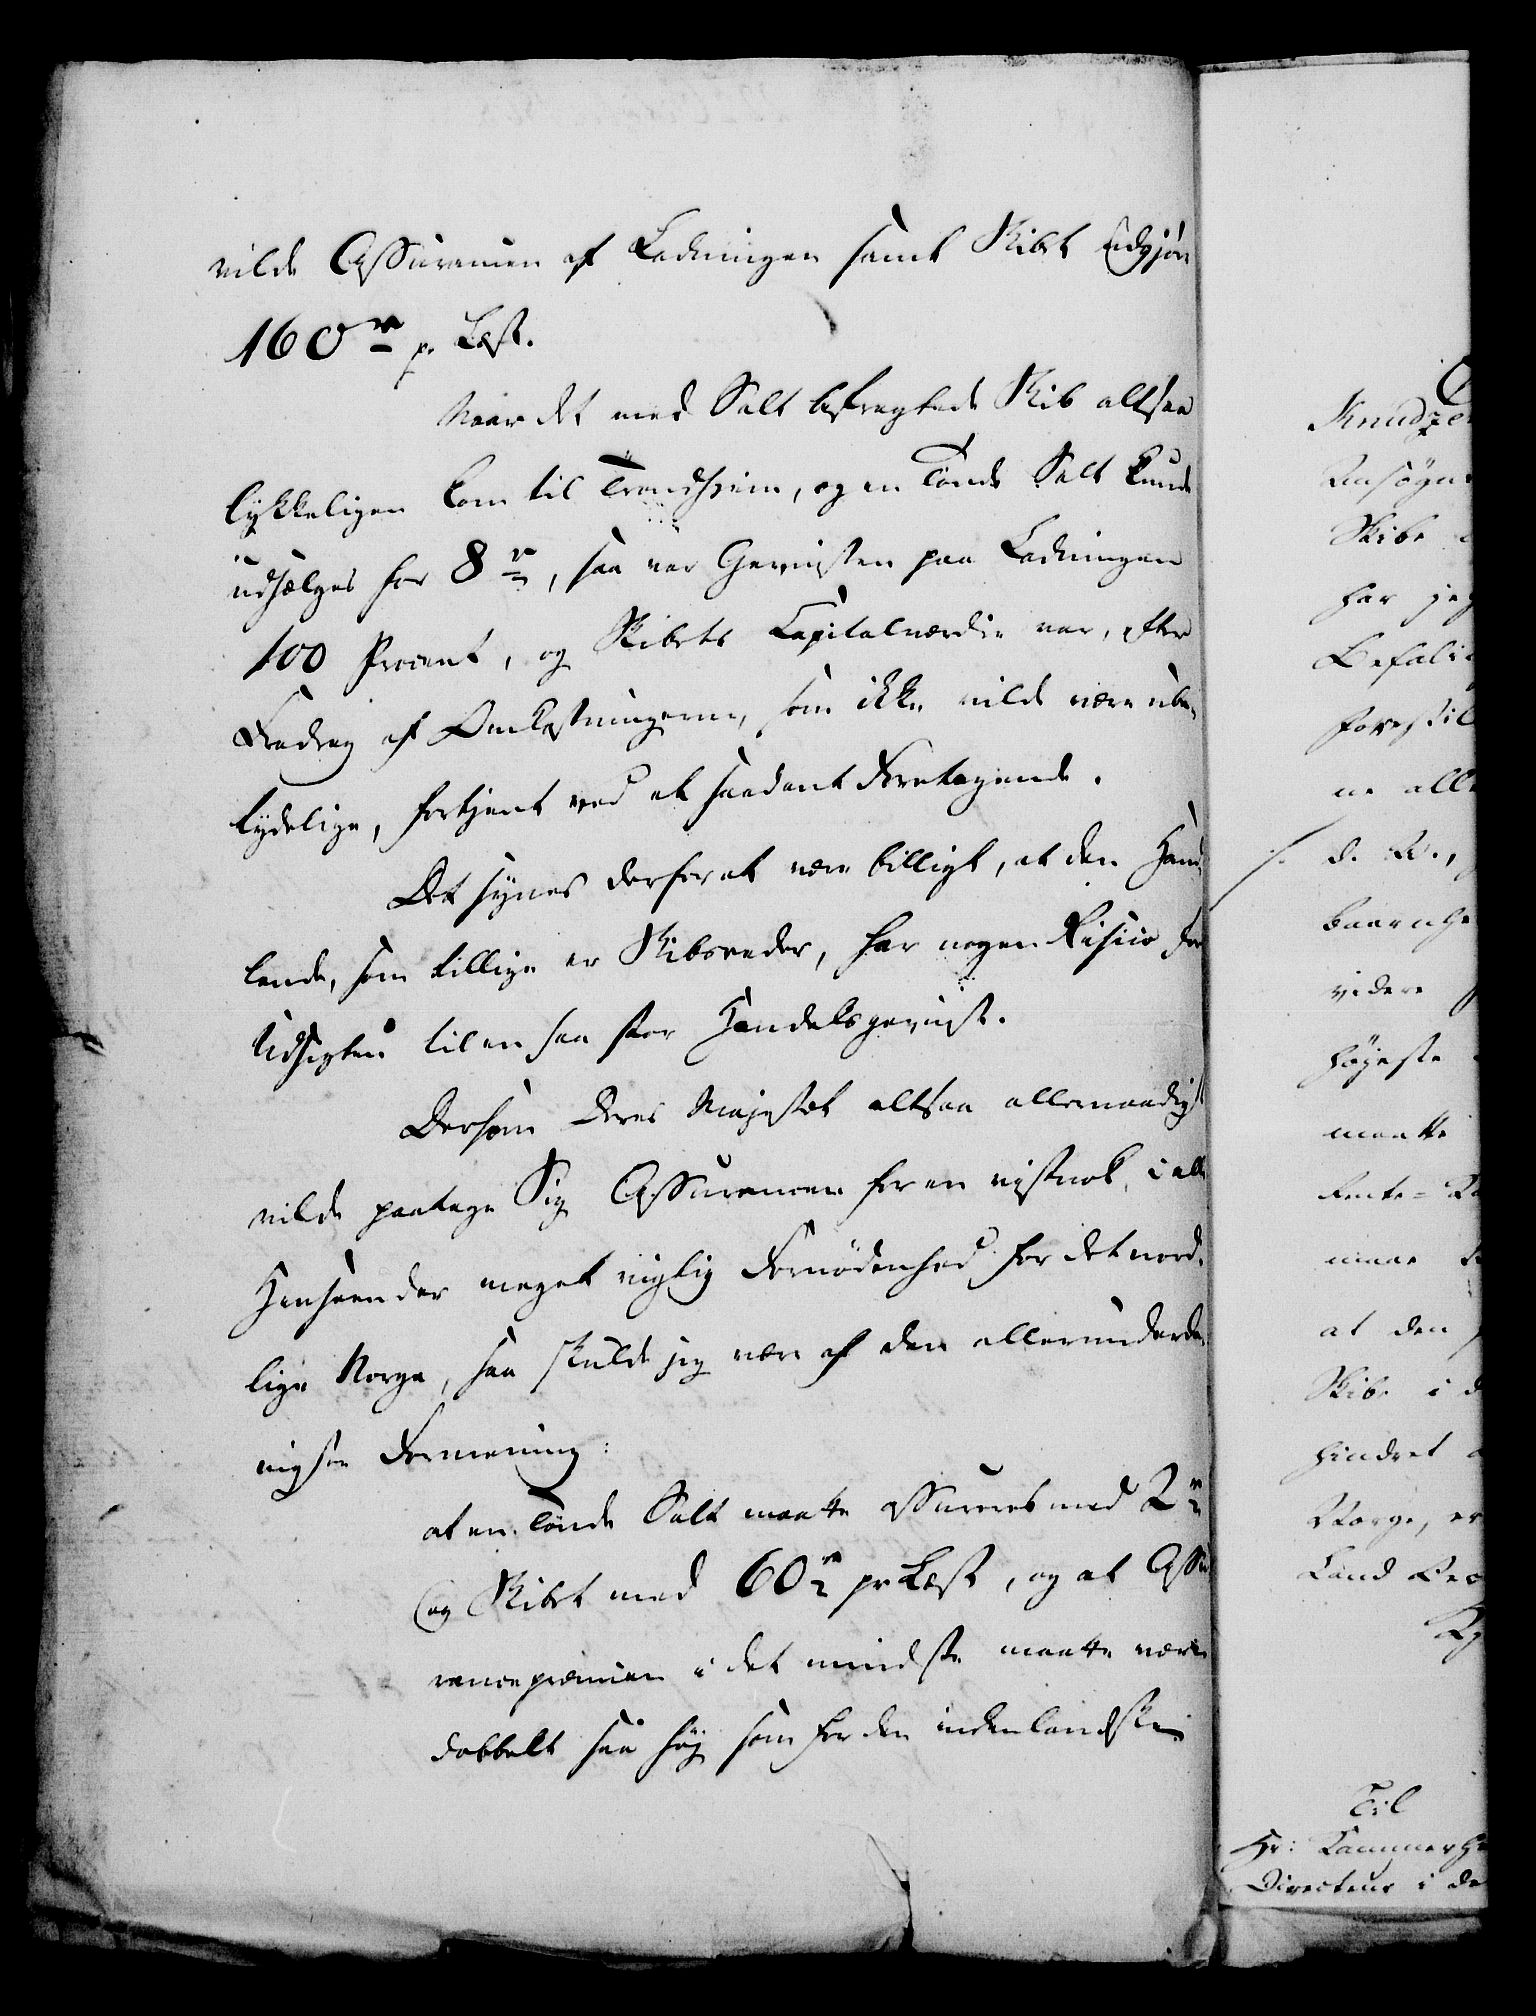 vilde Assurancen af Ladningen samt Skibet Udgjöre
160 rd pr Læst.
Naar det med Salt befragtede Skib altsaa
lykkeligen kom til Trondhiem, og en Tönde Salt kunde
udsælges for 8 rd, saa var Gevinsten paa Ladningen
100 Procent, og Skibets Capitalværdie var, efter
Fradrag af Omkostningerne, som ikke vilde være ube-
tydelige, fortjent ved et saadant Foretagende.
Det synes derfor at være billigt, at den Hand-
lende, som tillige er Skibsreder, har nogen Risico for
Udsigten til en saa stor Handelsgevinst.
Dersom Deres Majestæt altsaa allernaadigst
vilde paatage Sig Assurancen for en vistnok, i alle
Henseender meget vigtig Fornödenhed for det nord-
lige Norge, saa skulde jeg være af den allerunderda-
nigste Formening:
at en Tönde Salt maatte assureres med 2 rd
og Skibet med 60 rd pr Læst, og at Assu-
rancepræmien i det mindste maatte være
dobbelt saa höy som for den indenlandske
Knudzen
Ansögn
Skibe
har jeg
Befali
forestil
ne alle
d. A.,
baarnhe
videre
höjeste
maatte
Rente-
at den
Skibe i d
hindret
Norge, er
Land
Til
Hr: Kammerhe
Directeur i de